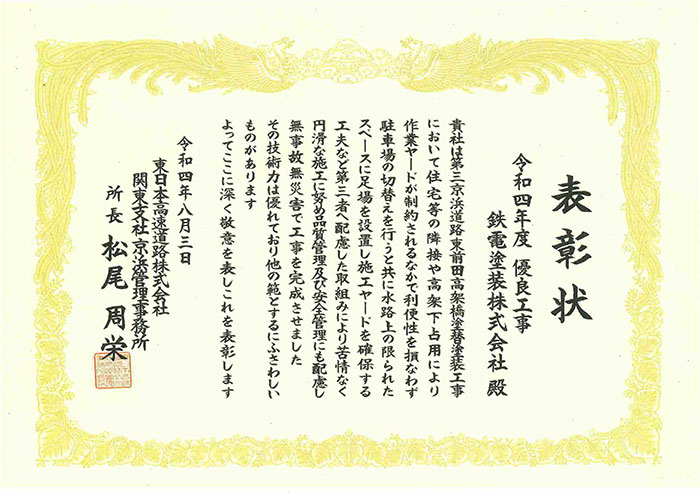 表彰状
令和四年度 優良工事
鉄電塗装株式会社 殿
貴社は第三京浜道路東前田高架橋塗替塗装工事
において住宅等の隣接や高架下占用により
作業ヤードが制約されるなかで利便性を損なわず
駐車場の切替えを行うと共に水路上の限られた
スペースに足場を設置し施工ヤードを確保する
工夫など第三者へ配慮した取組みにより苦情なく
円滑な施工に努め品質管理及び安全管理にも配慮し
無事故無災害で工事を完成させました
その技術力は優れており他の範とするにふさわしい
ものがあります
よってここに深く敬意を表しこれを表彰します
令和四年八月三日
東日本高速道路株式会社
関東支社 京浜管理事務所
所長 松尾 周栄